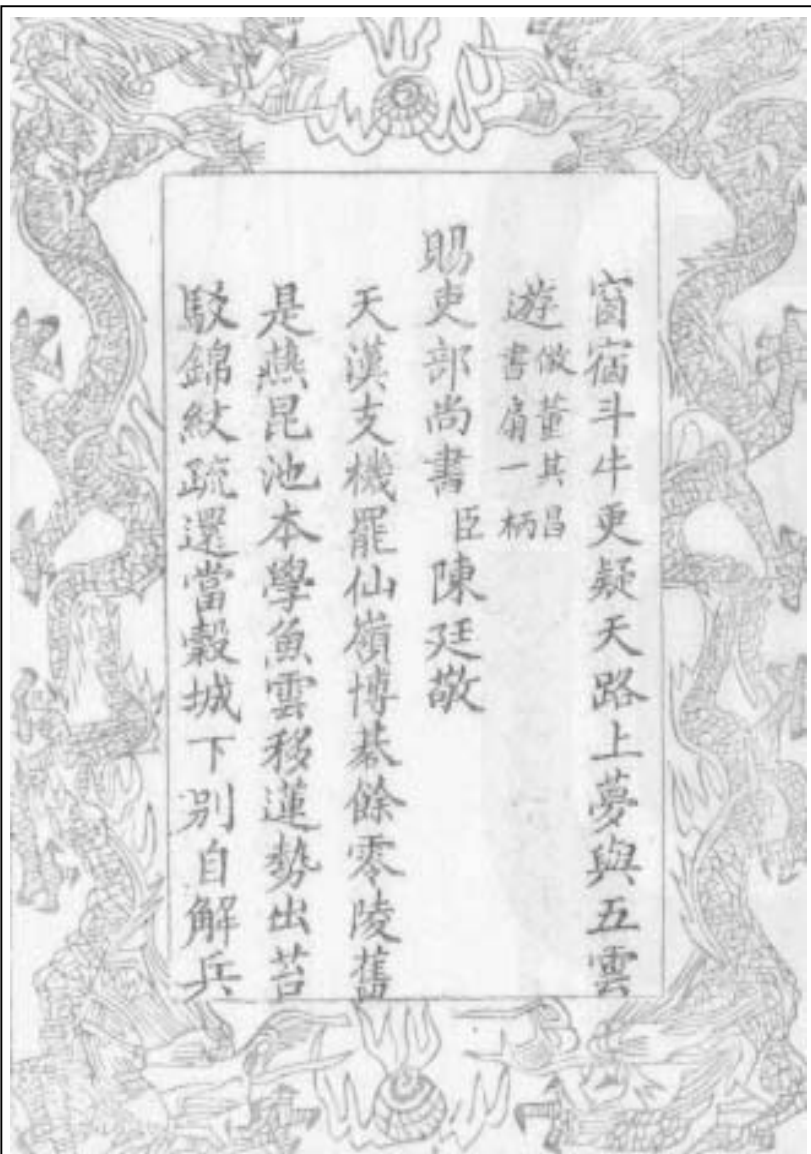 窗宿斗牛更疑天路上夢與五雲
遊倣董其昌
書扇一柄
賜吏部尚書臣陳廷敬
天漢支機罷仙嶺博棊餘零陵舊
是燕昆池本學魚雲移蓮勢出苔
駁錦紋疏還當穀城下別自解兵